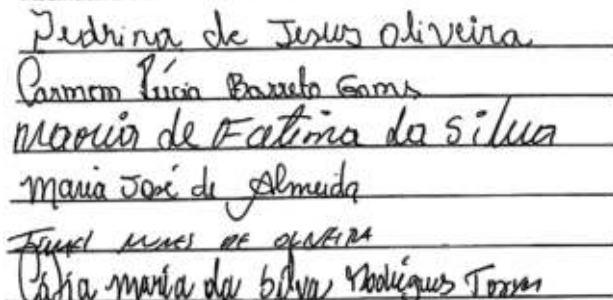 Pedrina de Jesus Oliveira
Carmem Lúcia Barreto Goms
Maria de Fatima da Silva
Maria José de Almeida
NUNES DE OLIVEIRA
Maria da Silva Rodrigues Torres